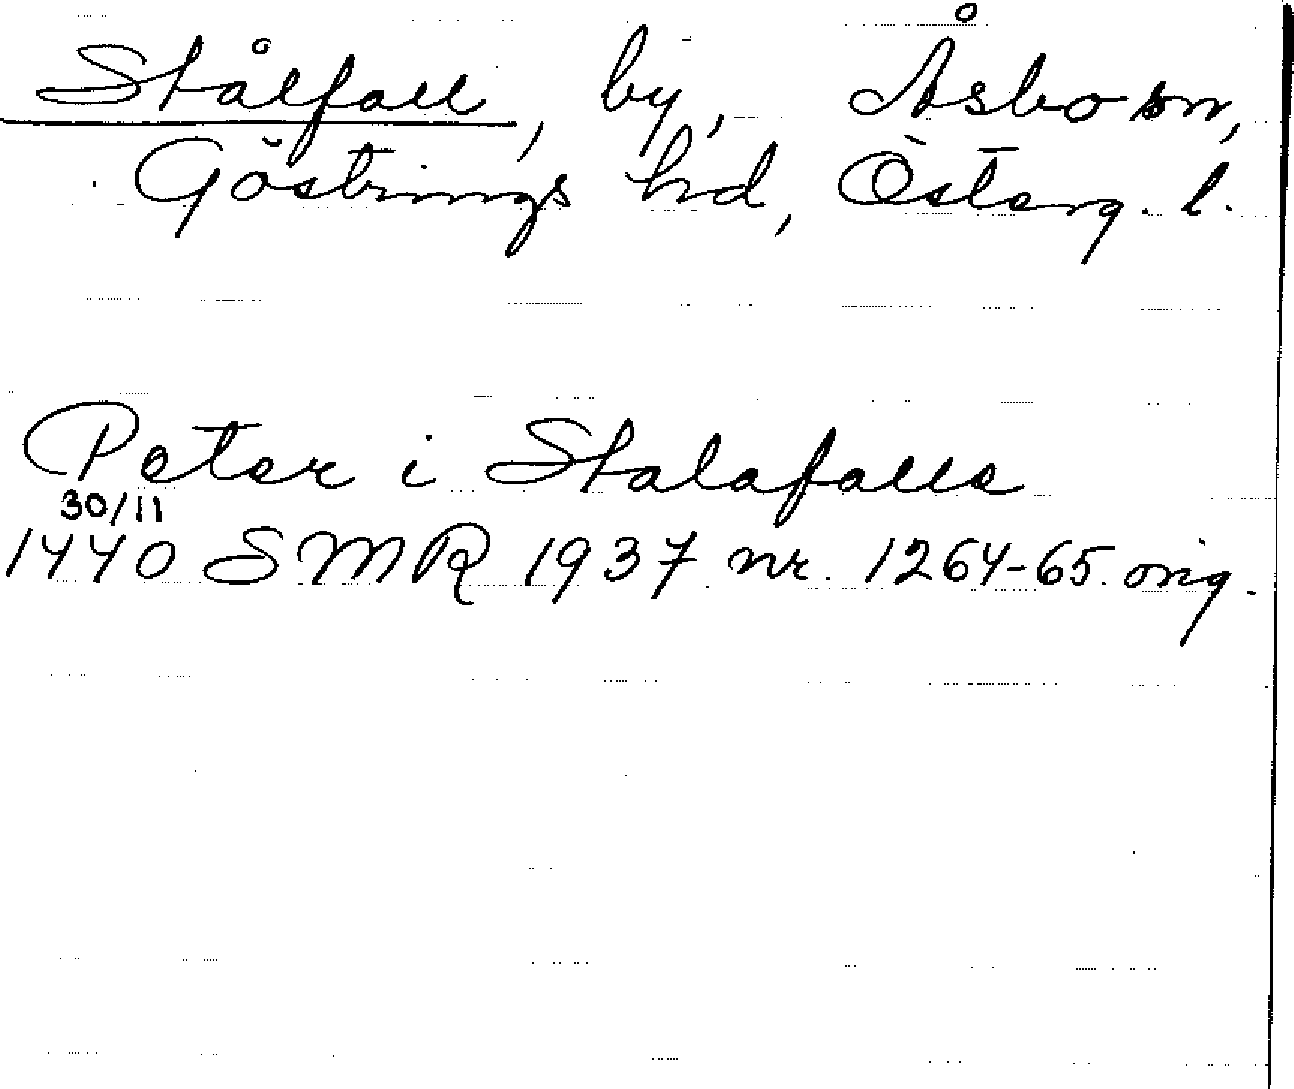 Stålfall, by, Åsbo sn,
Göstrings hd, Österg. l.
Peter i Stalafalle
30/11
1440 SMR 1937 nr. 1264-65 orig.